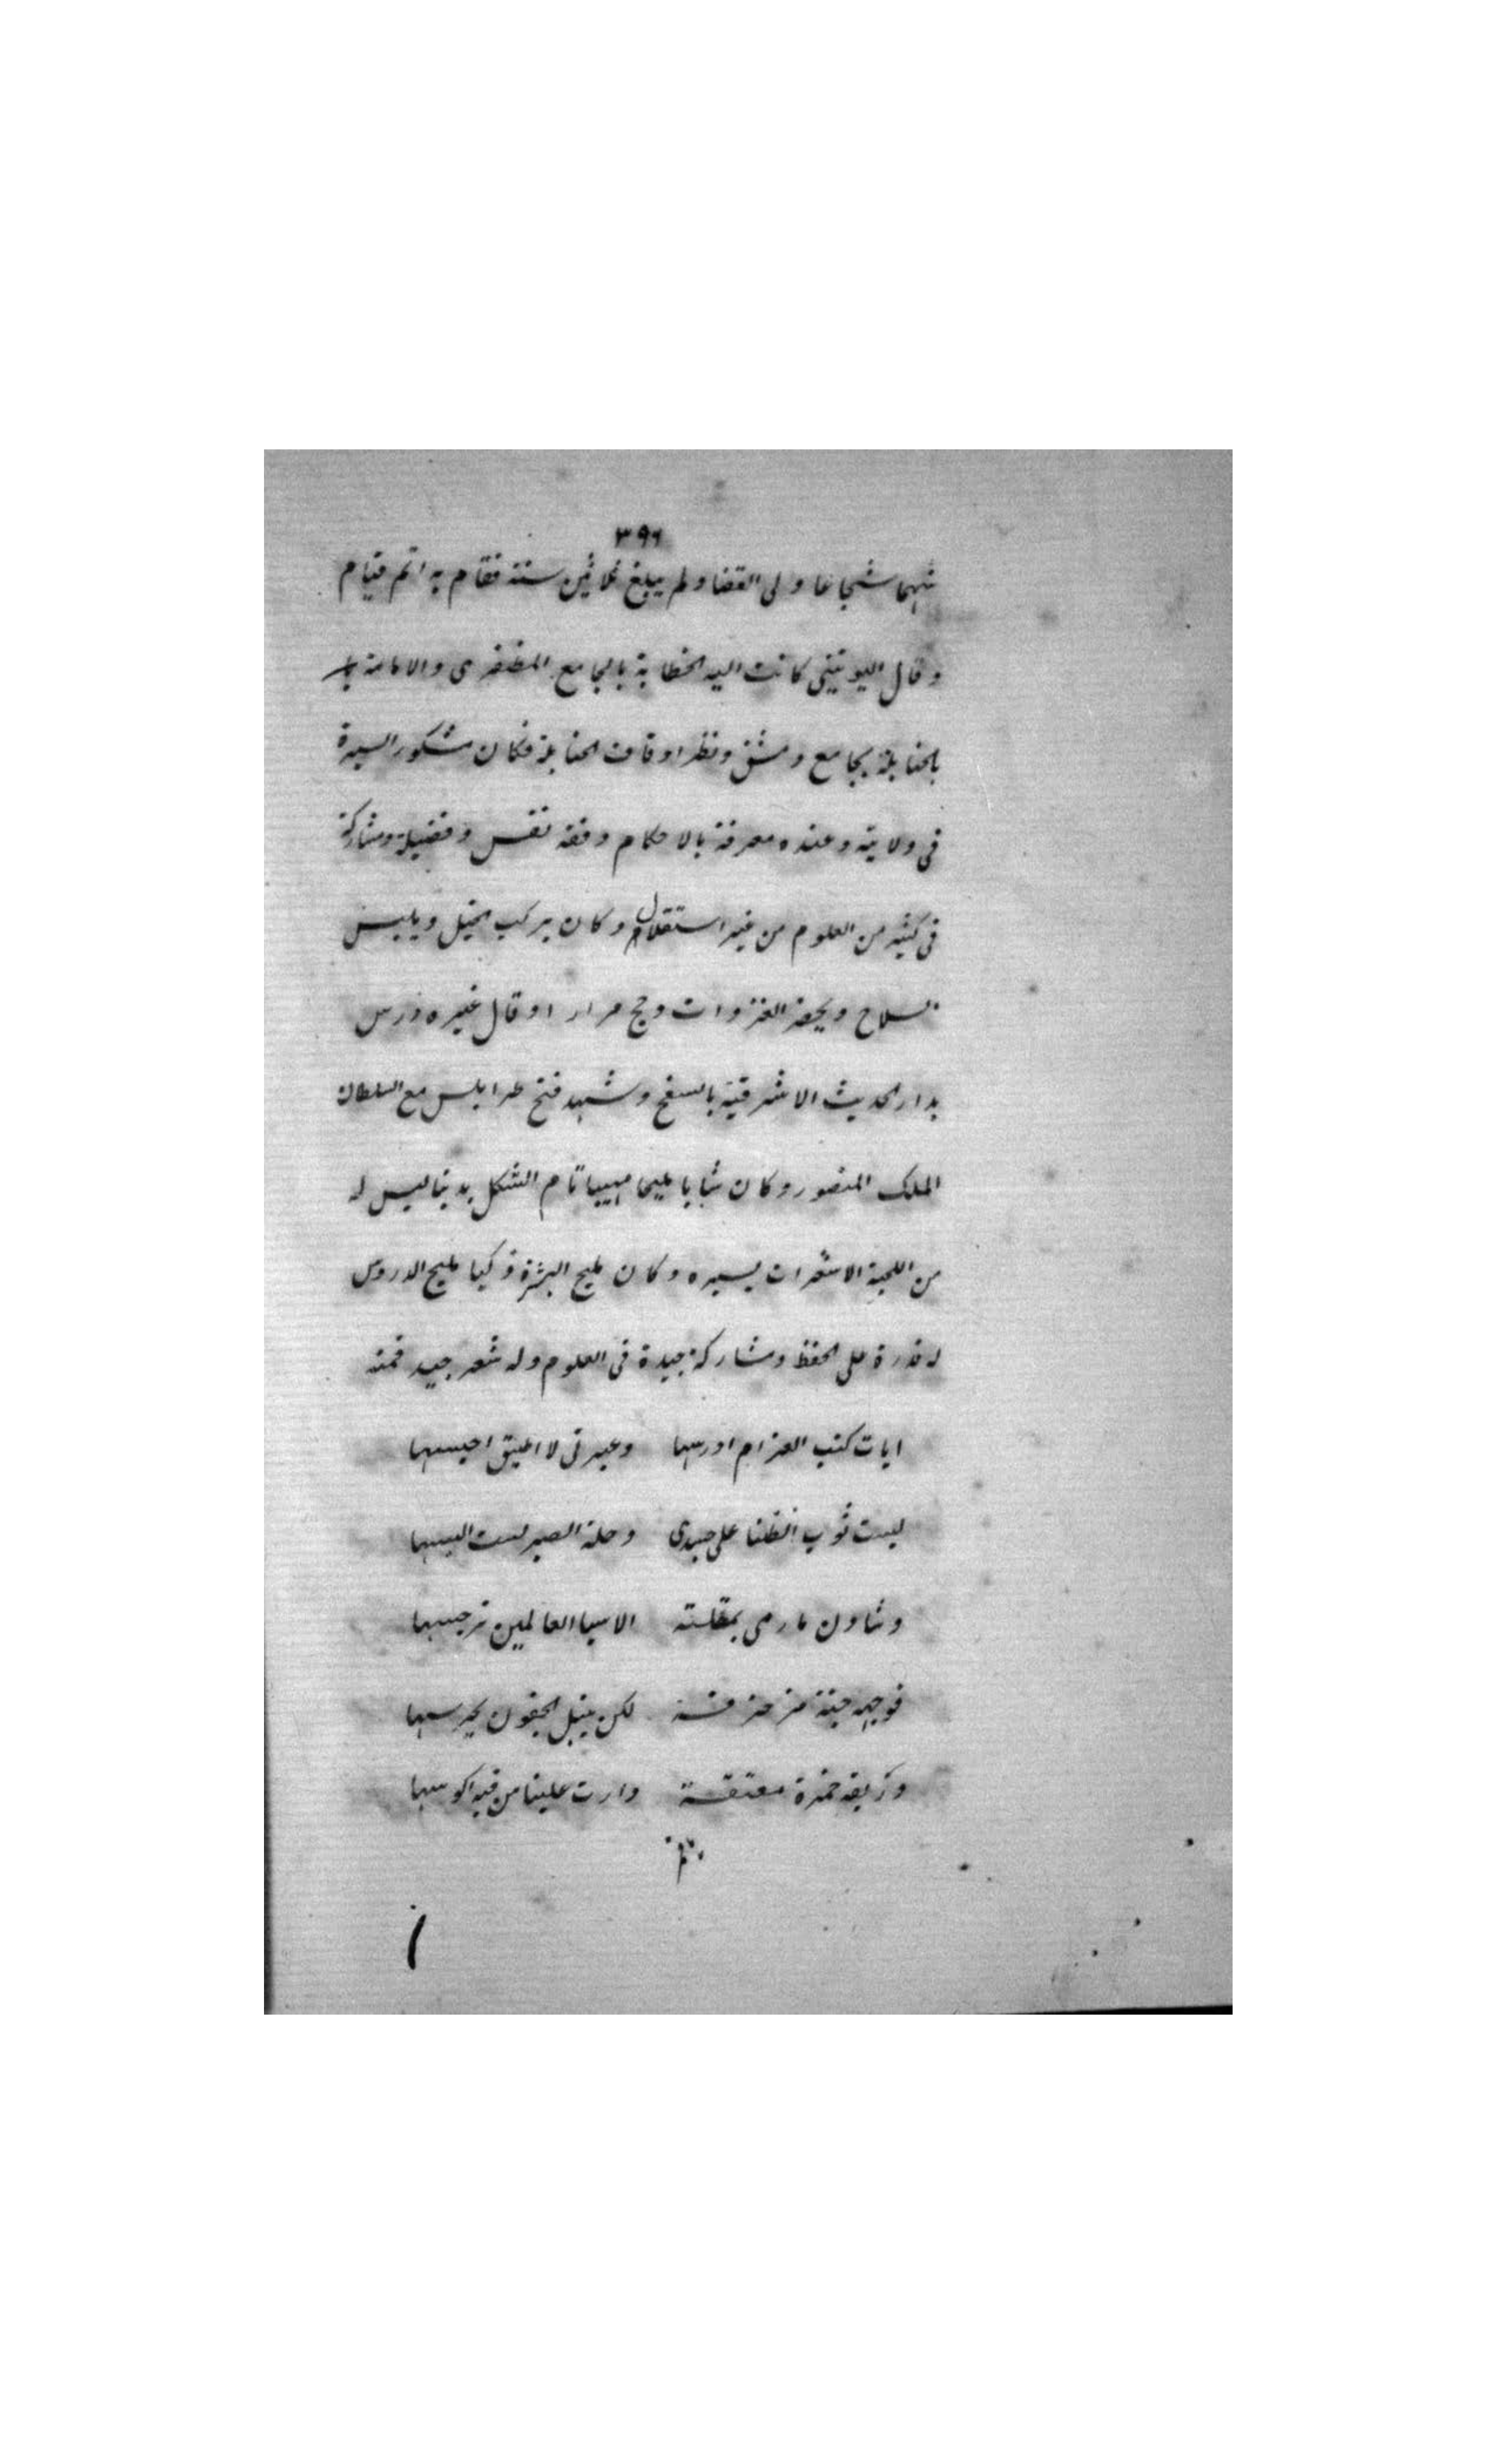 ٣٩٦
شهما شجاعا ولى القضا ولم يبلغ ثلاثين سنة فقام به اتم قيام
وقال اليونينى كانت اليه الخطابة بالجامع المظفرى والامامة
بالحنابلة بجامع دمشق ونظر اوقاف الحنابلة فكان مشكور السيرة
فى ولايته وعنده معرفة بالاحكام وفقه نفس وفضيلة ومشاركة
فى كثير من العلوم من غير استقلال وكان يركب الخيل ويلبس
السلاح ويحضر الغزوات وحج مرارا وقال غيره درس
بدار الحديث الاشرفية بالسفح وشهد فتح طرابلس مع السلطان
الملك المنصور وكان شابا مليحا مهيبا تام الشكل بدينا ليس له
من اللحية الا شعرات يسيره وكان مليح البشرة ذكيا مليح الدروس
له قدرة على الحفظ ومشاركة جيدة فى العلوم وله شعر جيد فمنه
ايات كتب الغرام ادرسها وعبرتى لا اطيق احبسها
لبست ثوب الضنا على جسدى وحلة الصبر لست البسها
وشادن ما رمى بمقلته الا سبا العالمين نرجسها
فوجهه جنة مزخرفة لكن بنبل الجفون يحرسها
وريقه خمرة معتقة دارت علينا من فيه اكوسها